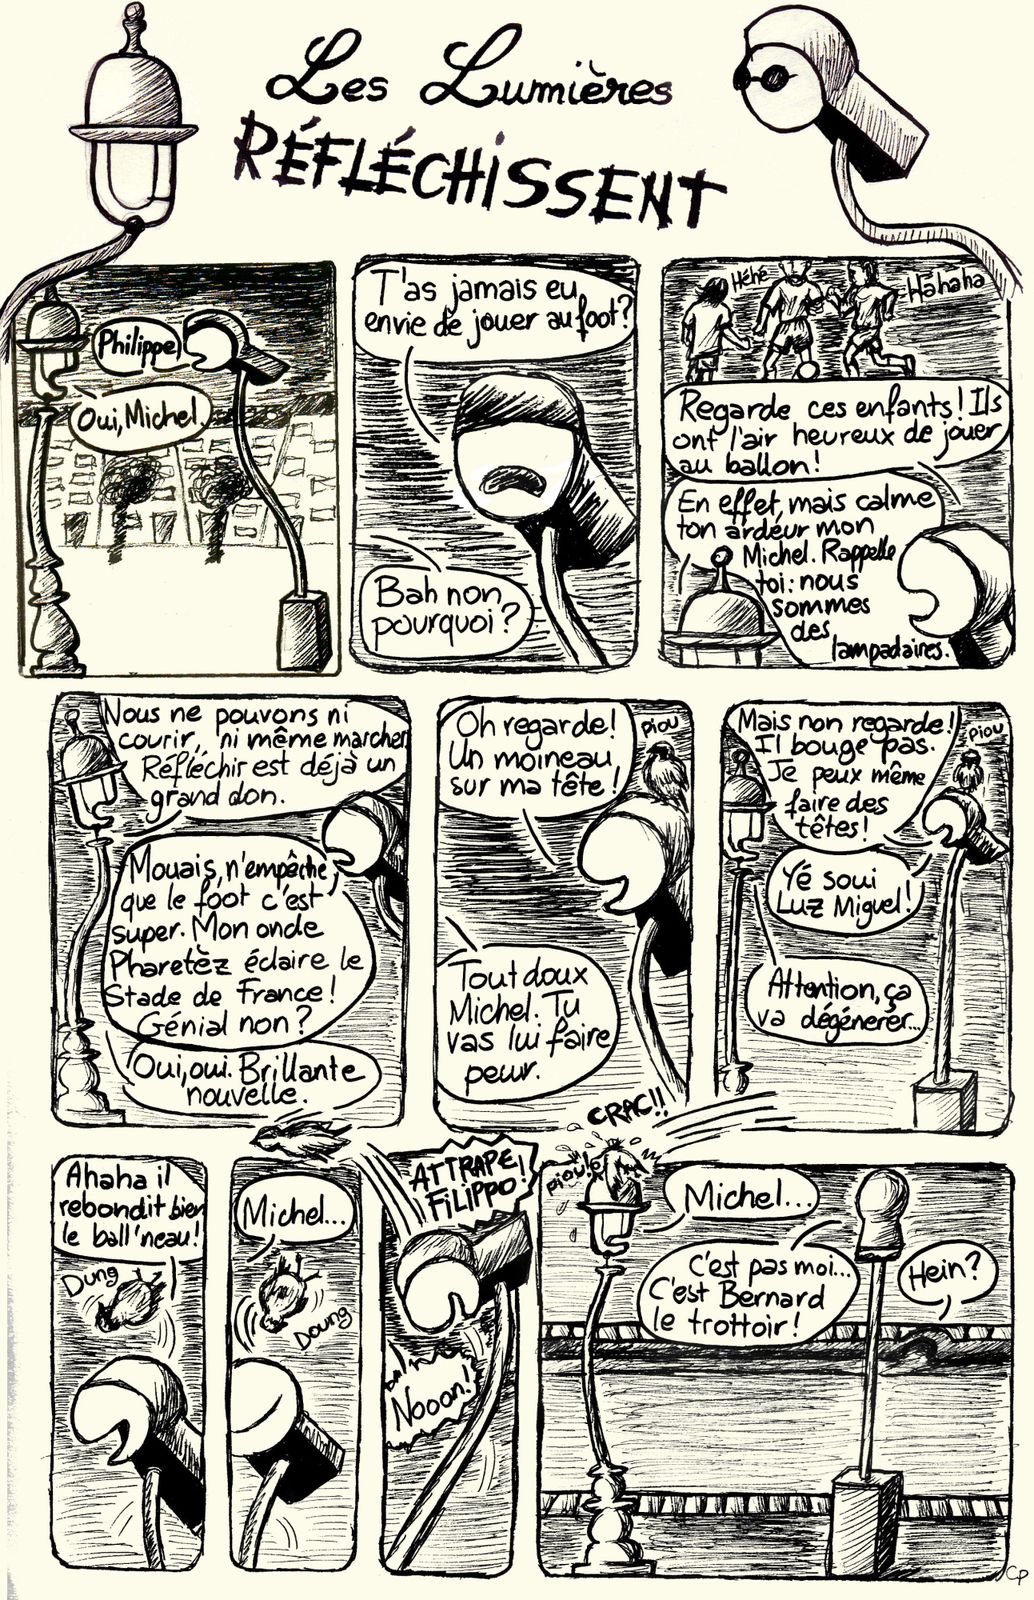 Les Lumières
RÉFLÉCHISSENT
Philippe
Oui, Michel.
T'as jamais eu
envie de jouer au foot?
Bah non
pourquoi?
Héhé
Hahaha
Regarde ces enfants! Ils
ont l'air heureux de jouer
au ballon!
En effet, mais calme
ton ardeur mon
Michel. Rappelle
toi: nous
sommes
des
lampadaires.
Nous ne pouvons ni
courir, ni même marcher
Réfléchir est déjà un
grand don.
Mouais, n'empêche
que le foot c'est
super. Mon onde
Pharetèz éclaire le
Stade de France!
Génial non?
Oui, oui. Brillante
nouvelle.
Oh regarde!
Un moineau
sur ma tête!
piou
Tout doux
Michel. Tu
vas lui faire
peur.
Mais non regarde!
Il bouge pas.
Je peux même
faire des
têtes!
piou
Yé soui
Luz Miguel!
Attention, ça
va dégénerér...
Ahaha il
rebondit bien
le ball'neau!
Dung
Michel...
Doung
ATTRAPE
FILIPPO!
Nooon!
CRAC!!
piou
Michel...
C'est pas moi...
C'est Bernard
le trottoir!
Hein?
CP